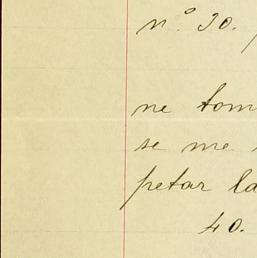 nº 30.
ne tom
se me
petar la
40.